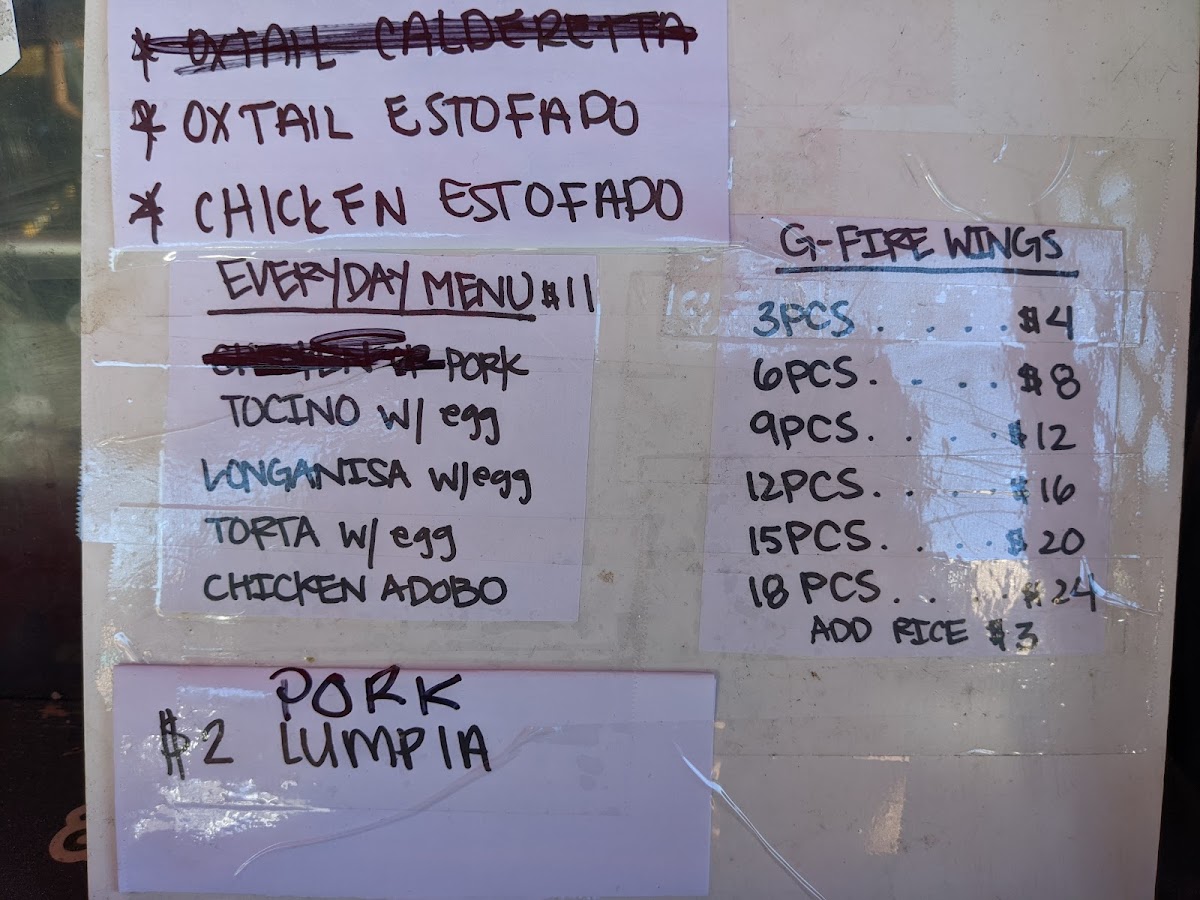 * OXTAIL CALDERETTA
* OXTAIL ESTOFADO
* CHICKEN ESTOFADO
EVERYDAY MENU $11
PORK
TOCINO w/ egg
LONGANISA w/egg
TORTA w/ egg
CHICKEN ADOBO
G-FIRE WINGS
3PCS . . . . . $4
6PCS. . . . . $8
9PCS. . . . . $12
12PCS. . . . . $16
15PCS. . . . . $20
18 PCS. . . . . $24
ADD RICE $3
PORK
$2 LUMPIA